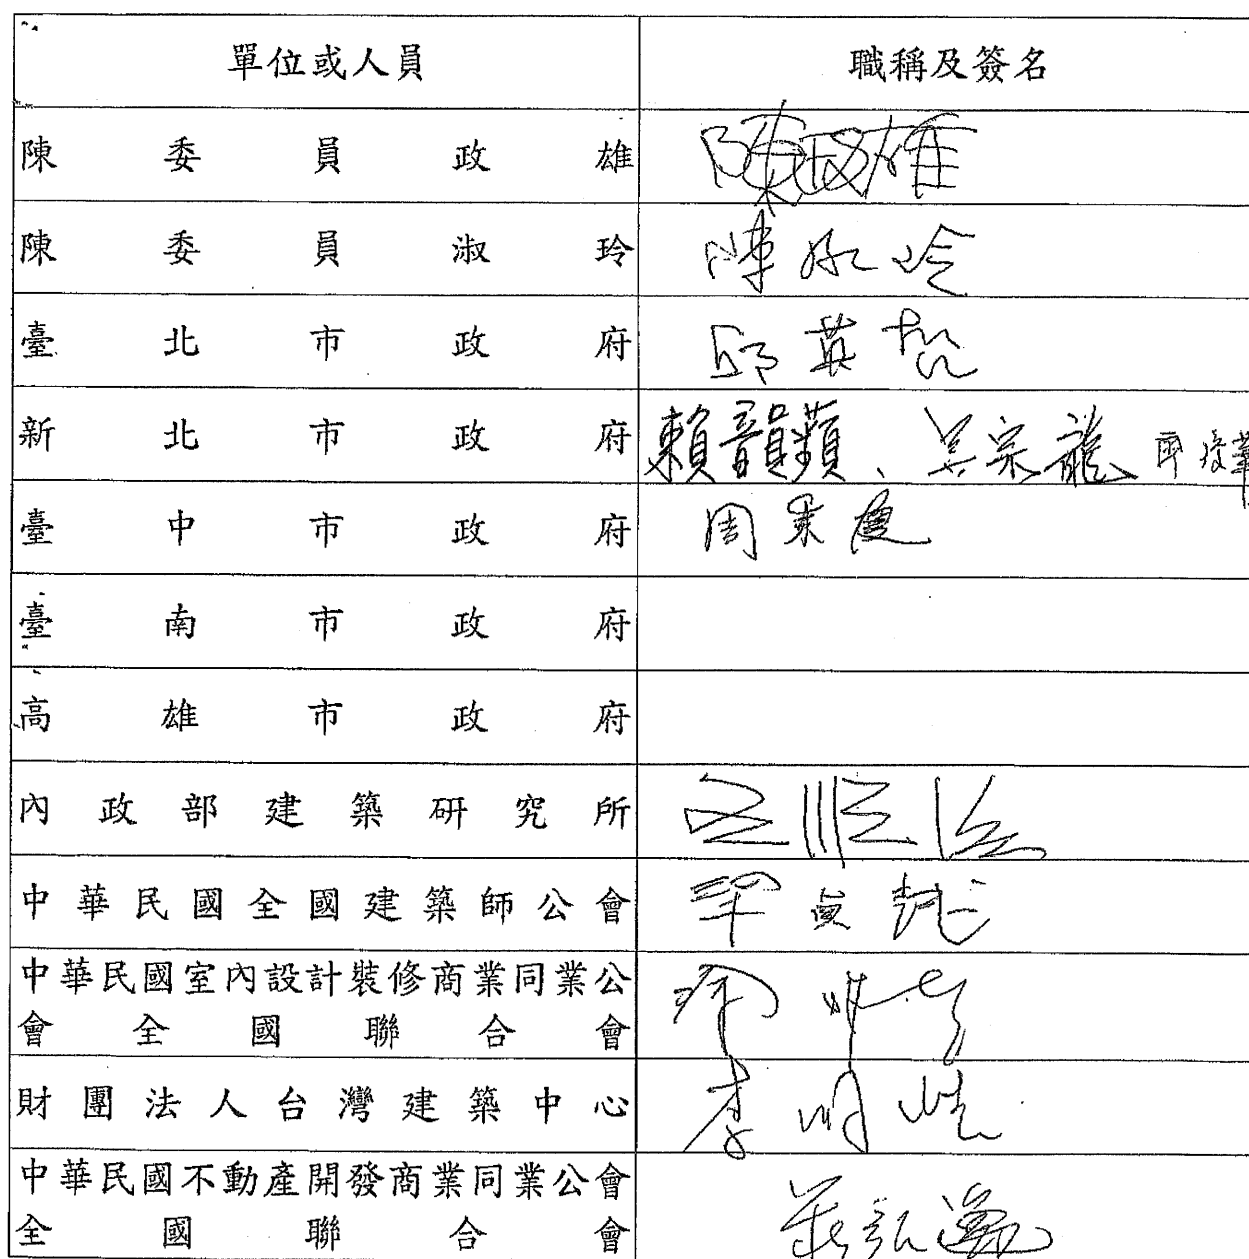 單位或人員 職稱及簽名
陳委員政雄 陳政雄
陳委員淑玲 陳淑玲
臺北市政府 邱英哲
新北市政府 賴韻蘋、吳宗龍
臺中市政府 周
臺南市政府
高雄市政府
內政部建築研究所
中華民國全國建築師公會
中華民國室內設計裝修商業同業公
會全國聯合會
財團法人台灣建築中心 李明
中華民國不動產開發商業同業公會
全國聯合會